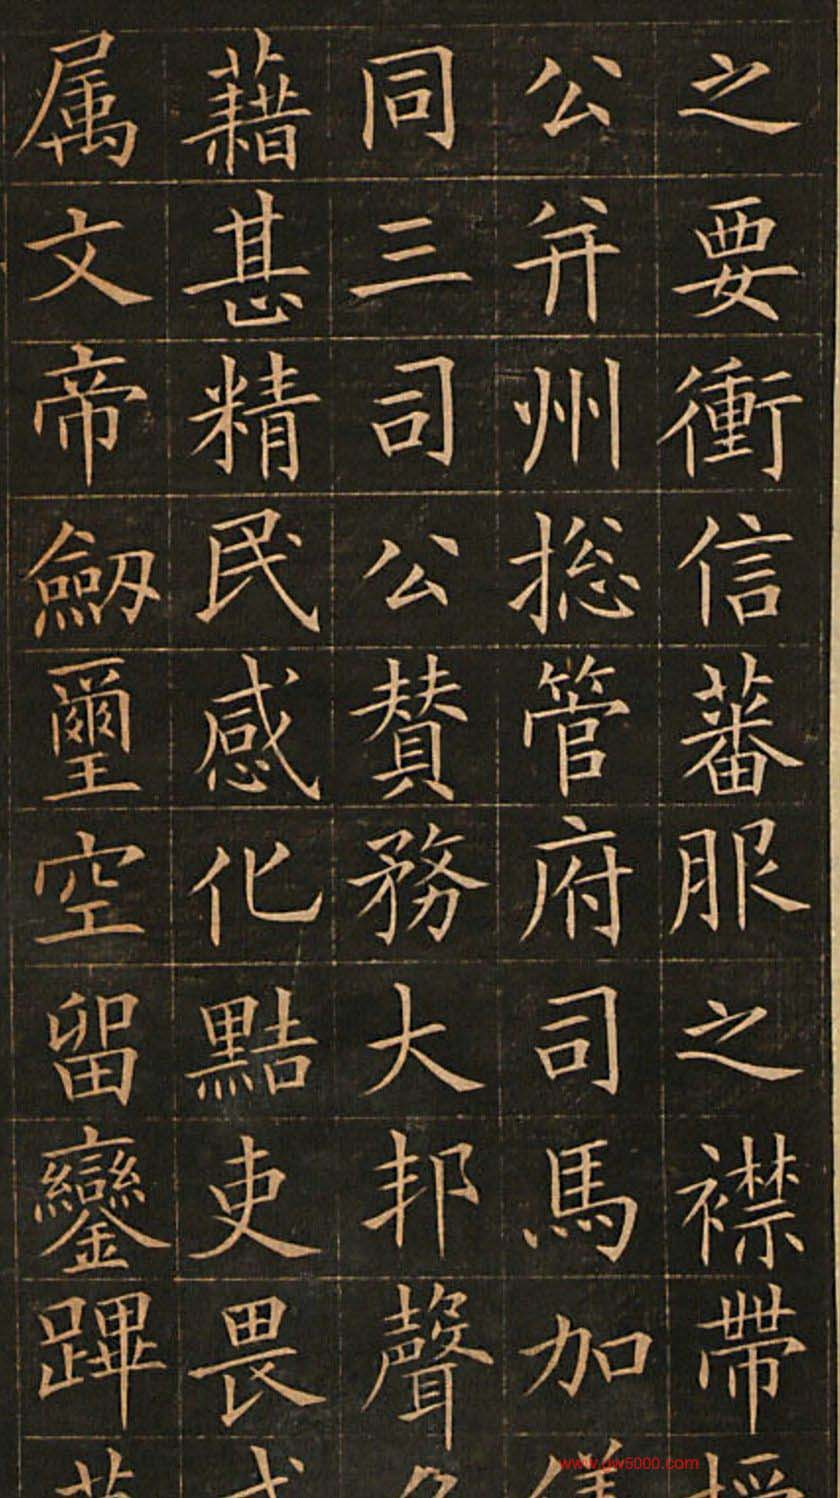 之要衝信蕃服之襟帶授
公并州揔管府司馬加儀
同三司公賛務大邦聲名
藉甚精民感化黠吏畏威
属文帝劔璽空留鑾蹕
www.dw5000.com